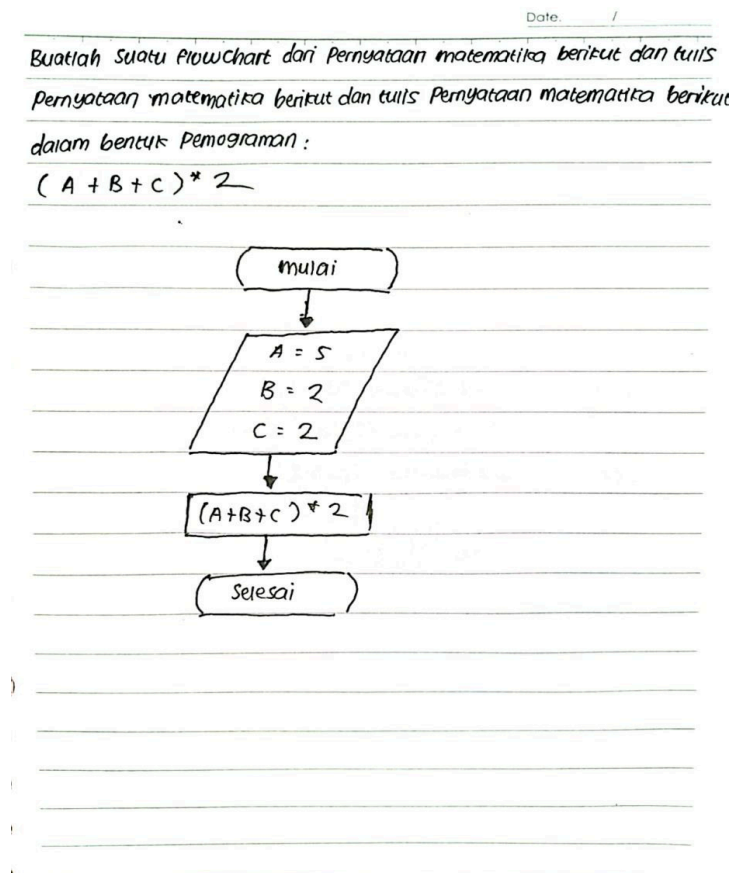 Date. /
Buatlah suatu flowchart dari Pernyataan matematika berikut dan tulis
Pernyataan matematika berikut dan tulis Pernyataan matematika berikut
dalam bentuk Pemograman :
( A + B + C ) * 2
mulai
A = 5
B = 2
C = 2
(A+B+C) * 2
Selesai